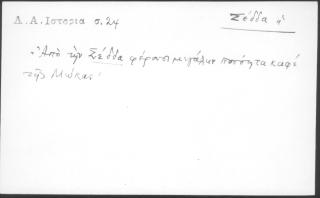 Δ.Α.Ιστορια σ.24
Σέδδα ἡ
Ἀπὸ τὴν Σέδδα φέρουσι μεγάλην ποσότητα καφέ
τῆς Μώκας